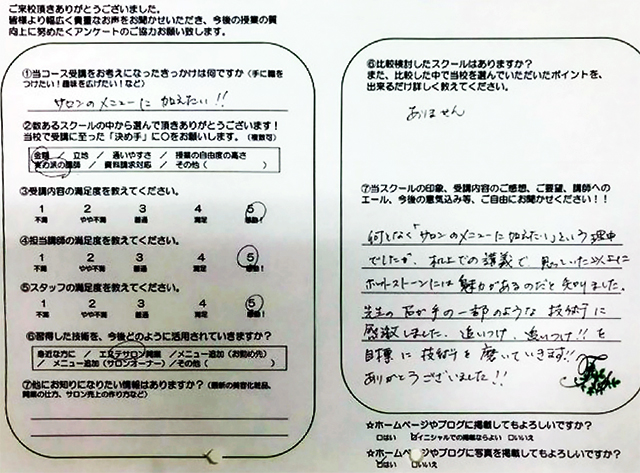 ご来校頂きありがとうございました。
皆様より幅広く貴重なお声をお聞かせいただき、今後の授業の質
向上に努めたくアンケートのご協力お願い致します。
①当コース受講をお考えになったきっかけは何ですか(手に職を
つけたい!趣味を広げたい!など)
サロンのメニューに加えたい!!
②数あるスクールの中から選んで頂きありがとうございます!
当校で受講に至った「決め手」に〇をお願いします。(複数可)
金額 / 立地 / 通いやすさ / 授業の自由度の高さ
実力派の講師 / 資料請求対応 / その他( )
③受講内容の満足度を教えてください。
1 2 3 4 5
不満 やや不満 普通 満足 感動!
④担当講師の満足度を教えてください。
1 2 3 4 5
不満 やや不満 普通 満足 感動!
⑤スタッフの満足度を教えてください。
1 2 3 4 5
不満 やや不満 普通 満足 感動!
⑥習得した技術を、今後どのように活用されていきますか?
身近な方に / エステサロン開業 /メニュー追加(お勤め先)
/ メニュー追加(サロンオーナー) /その他( )
⑦他にお知りになりたい情報はありますか?(最新の美容化粧品、
開業の仕方、サロン売上の作り方など)
⑥比較検討したスクールはありますか?
また、比較した中で当校を選んでいただいたポイントを、
出来るだけ詳しく教えてください。
ありません
⑦当スクールの印象、受講内容のご感想、ご要望、講師への
エール、今後の意気込み等、ご自由にお聞かせください!!
何となく「サロンのメニューに加えたい」という理由
でしたが、机上での講義で思っていた以上に
ホットストーンには魅力があるのだと知りました。
先生の石が手の一部のような技術に
感激しました。追いつけ、追いつけ!!を
目標に技術を磨いていきます!!
ありがとうございました!!
☆ホームページやブログに掲載してもよろしいですか?
□はい ☑イニシャルでの掲載ならよい □いいえ
☆ホームページやブログに写真を掲載してもよろしいですか?
☑はい □いいえ